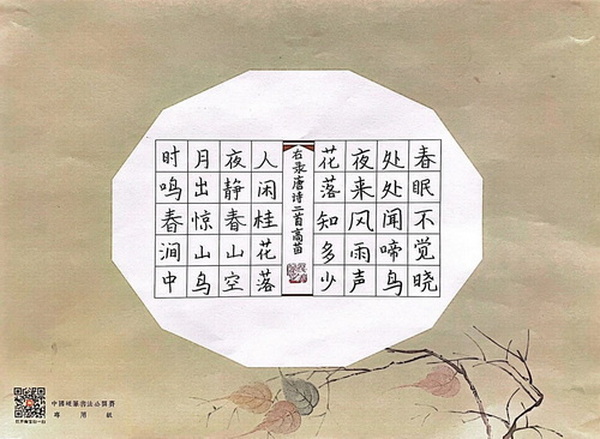 春眠不觉晓
处处闻啼鸟
夜来风雨声
花落知多少
右录唐诗二首高苗
人闲桂花落
夜静春山空
月出惊山鸟
时鸣春涧中
中國硬筆書法公開賽
專用紙